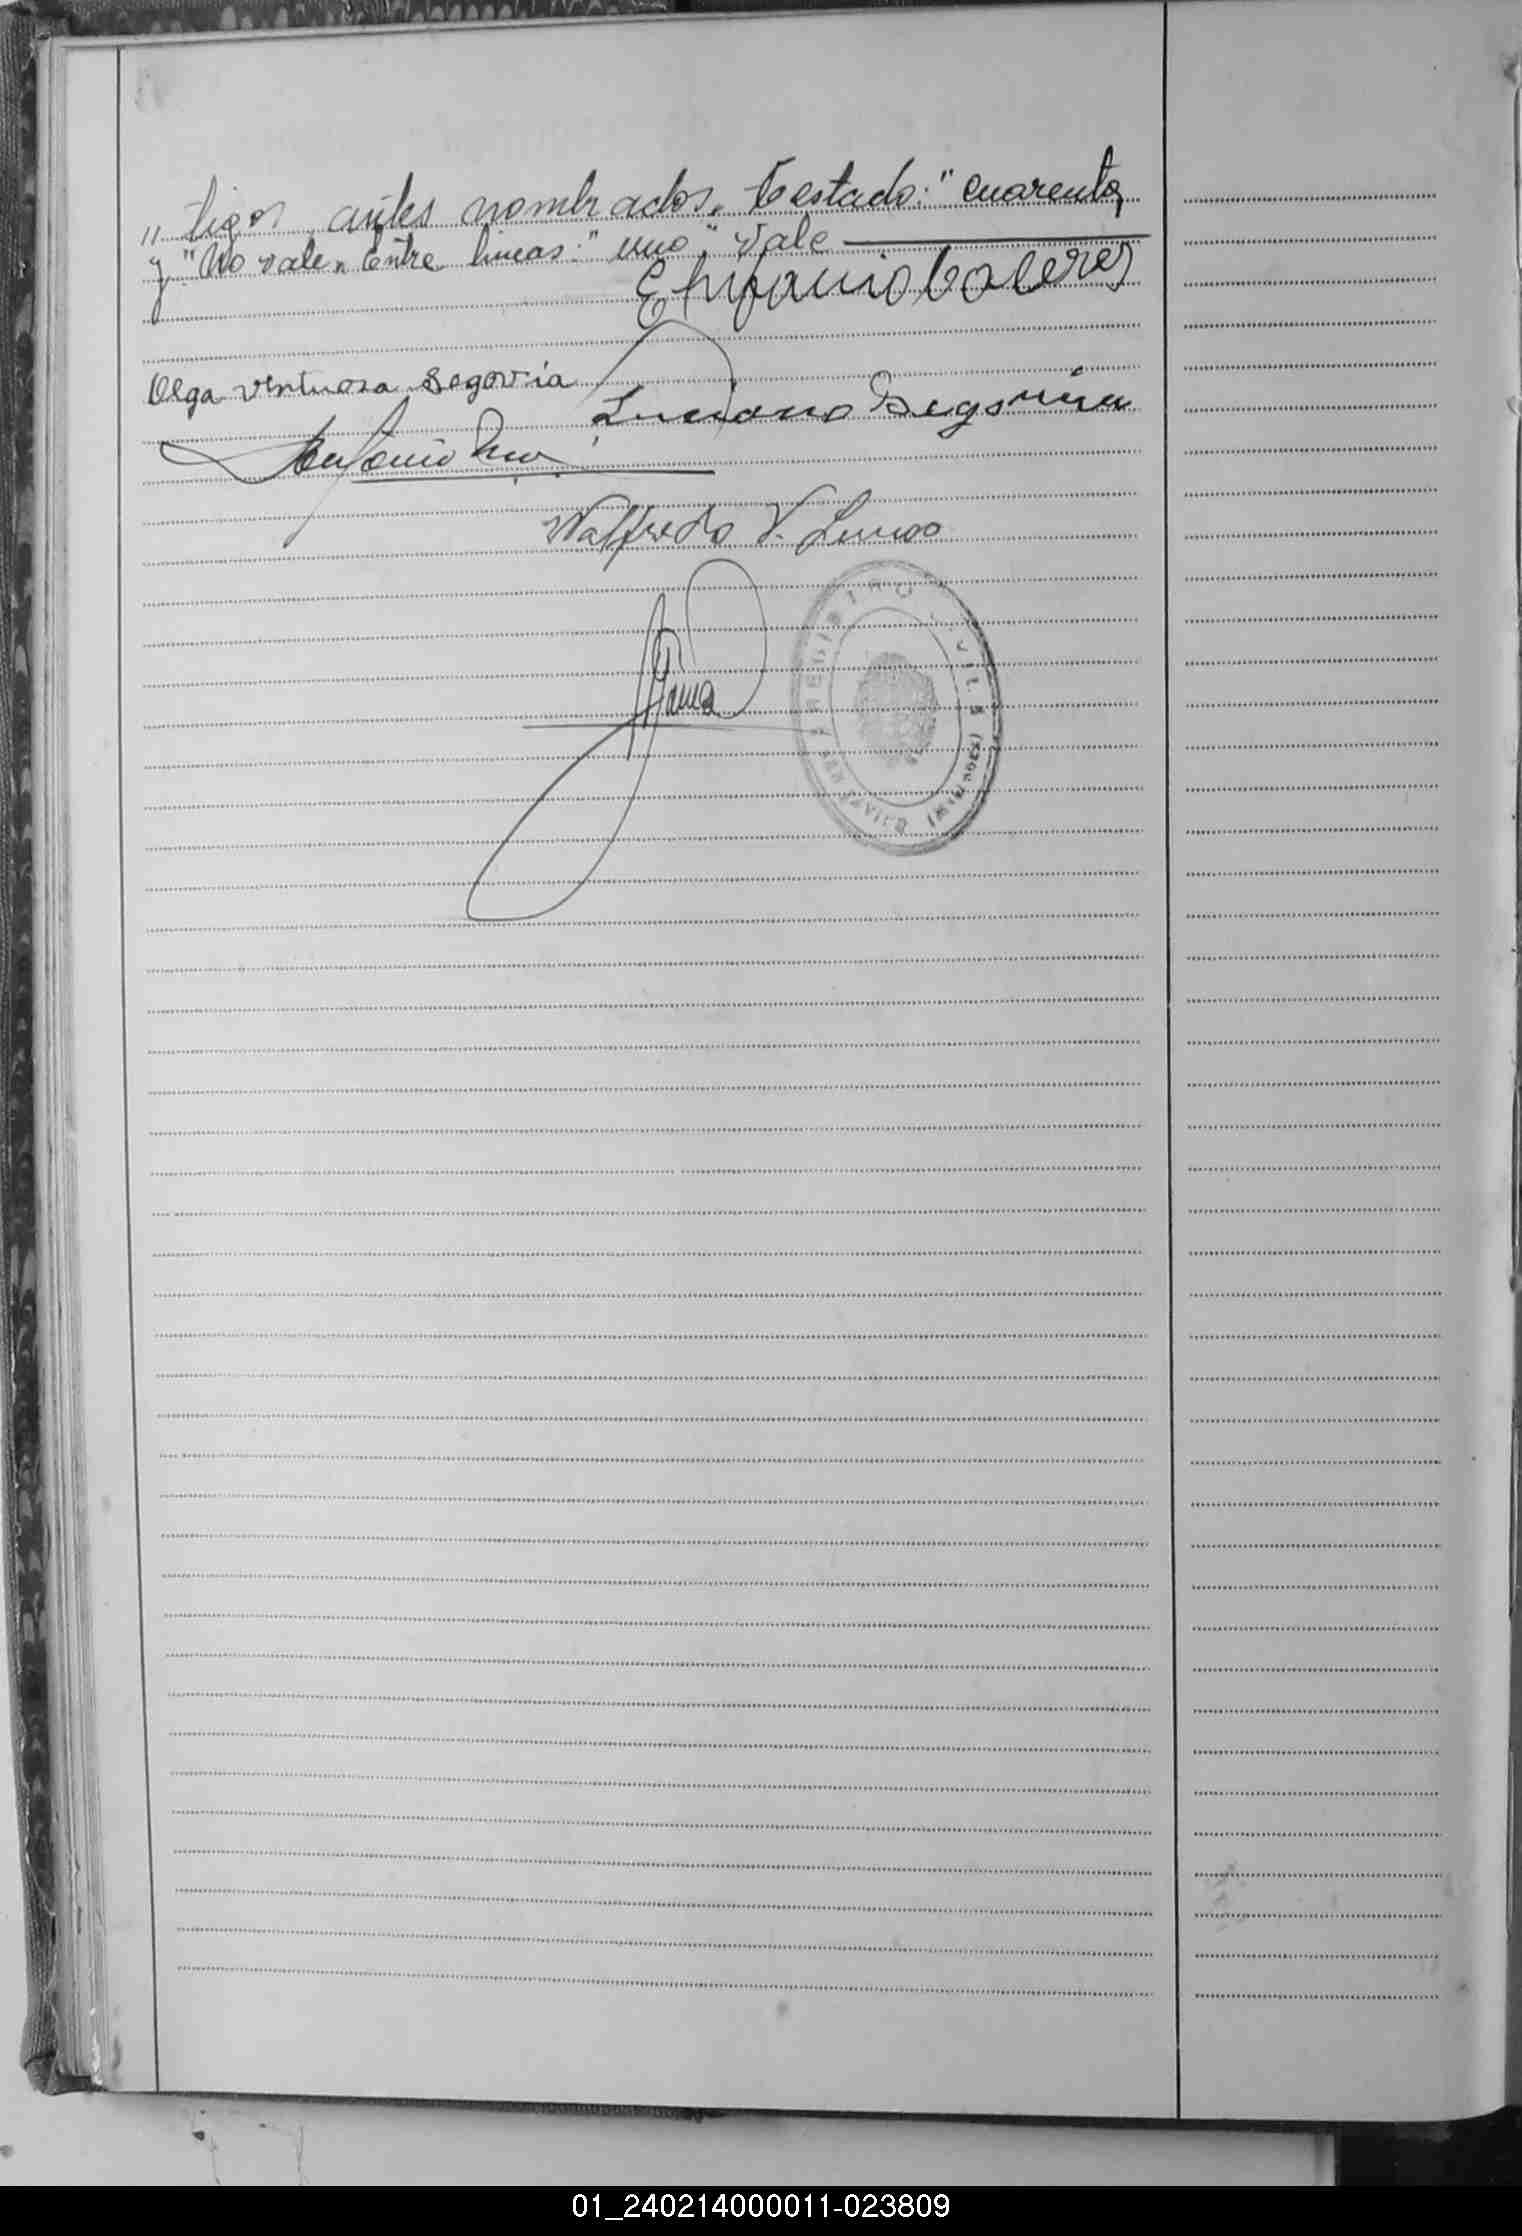 „ tigos antes nombrados. Testado: "cuarenta
y" No vale. Entre líneas: "uno" Vale
Epifanio Caceres
Olga Virtuosa Segovia
Luciano Segovia
Antonio
Walfredo V. Luna
REGISTRO CIVIL
SAN JAVIER (MISIONES)
01_240214000011-023809